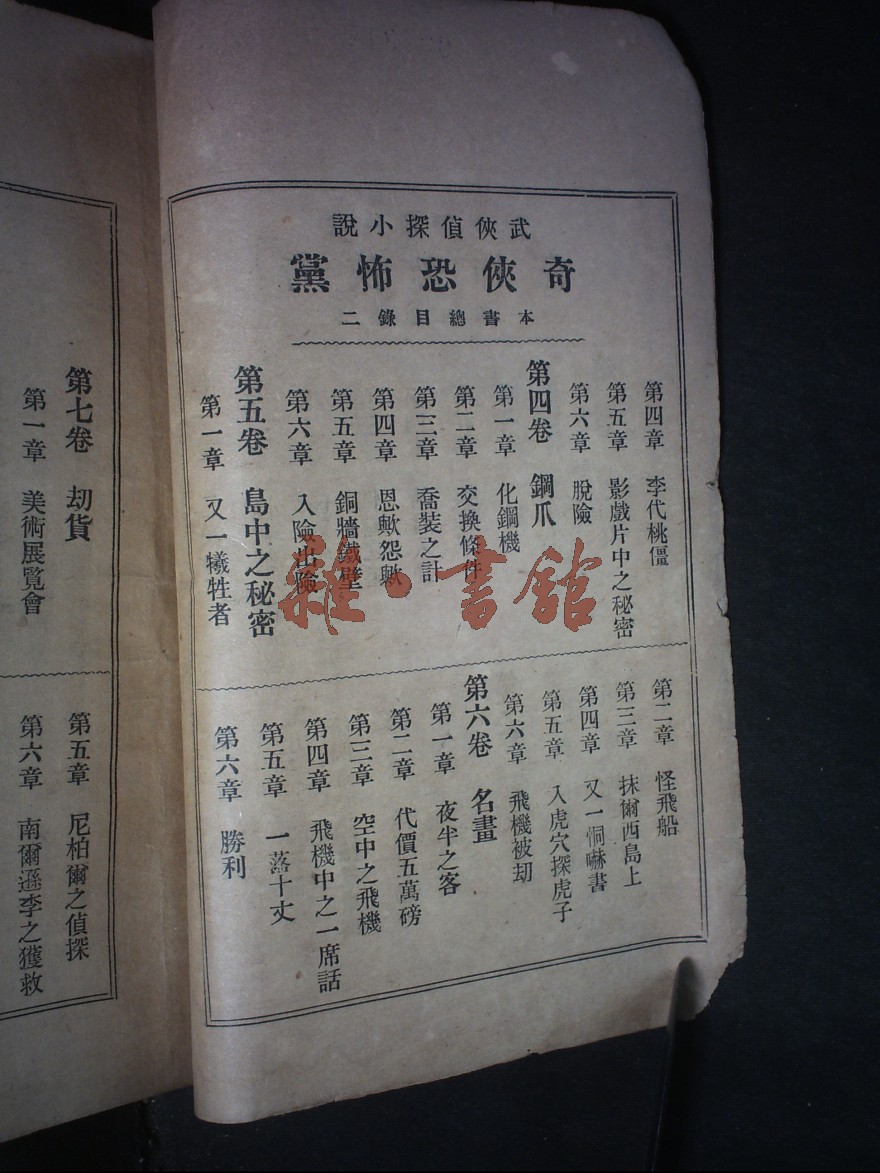 武俠偵探小說
奇俠恐怖黨
本書總目錄二
第四章　李代桃僵
第五章　影戲片中之秘密
第六章　脫險
第四卷　鋼爪
第一章　化鋼機
第二章　交換條件
第三章　喬裝之計
第四章　恩歟怨歟
第五章　銅牆鐵壁
第六章　入險出險
第五卷　島中之秘密
第一章　又一犧牲者
第二章　怪飛船
第三章　抹爾西島上
第四章　又一恫嚇書
第五章　入虎穴探虎子
第六章　飛機被刧
第六卷　名畫
第一章　夜半之客
第二章　代價五萬磅
第三章　空中之飛機
第四章　飛機中之一席話
第五章　一落十丈
第六章　勝利
第七卷　刧貨
第一章　美術展覽會
第五章　尼柏爾之偵探
第六章　南爾遜李之獲救
雜·書館